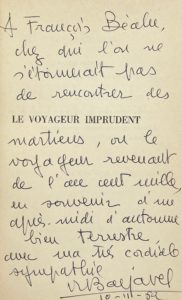 A François Béalu,
chez qui l'on ne
s'étonnerait pas
de rencontrer des
LE VOYAGEUR IMPRUDENT
martiens, ou le
voyageur revenant
de l'an cent mille,
en souvenir d'une
après-midi d'automne
bien terrestre
avec ma très cordiale
sympathie
Barjavel